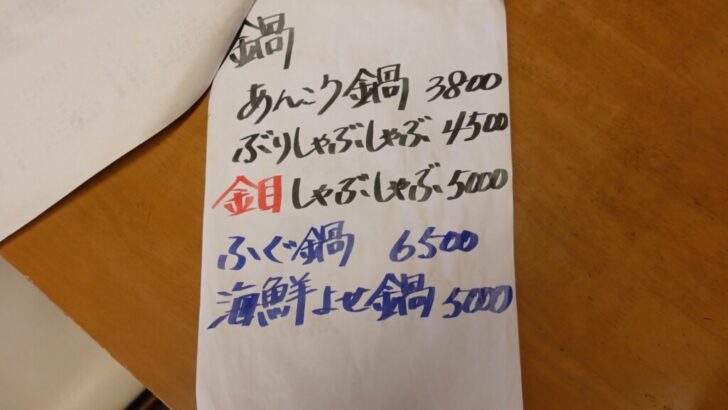 鍋
あんこう鍋 3800
ぶりしゃぶしゃぶ 4500
金目しゃぶしゃぶ 5000
ふぐ鍋 6500
海鮮よせ鍋 5000